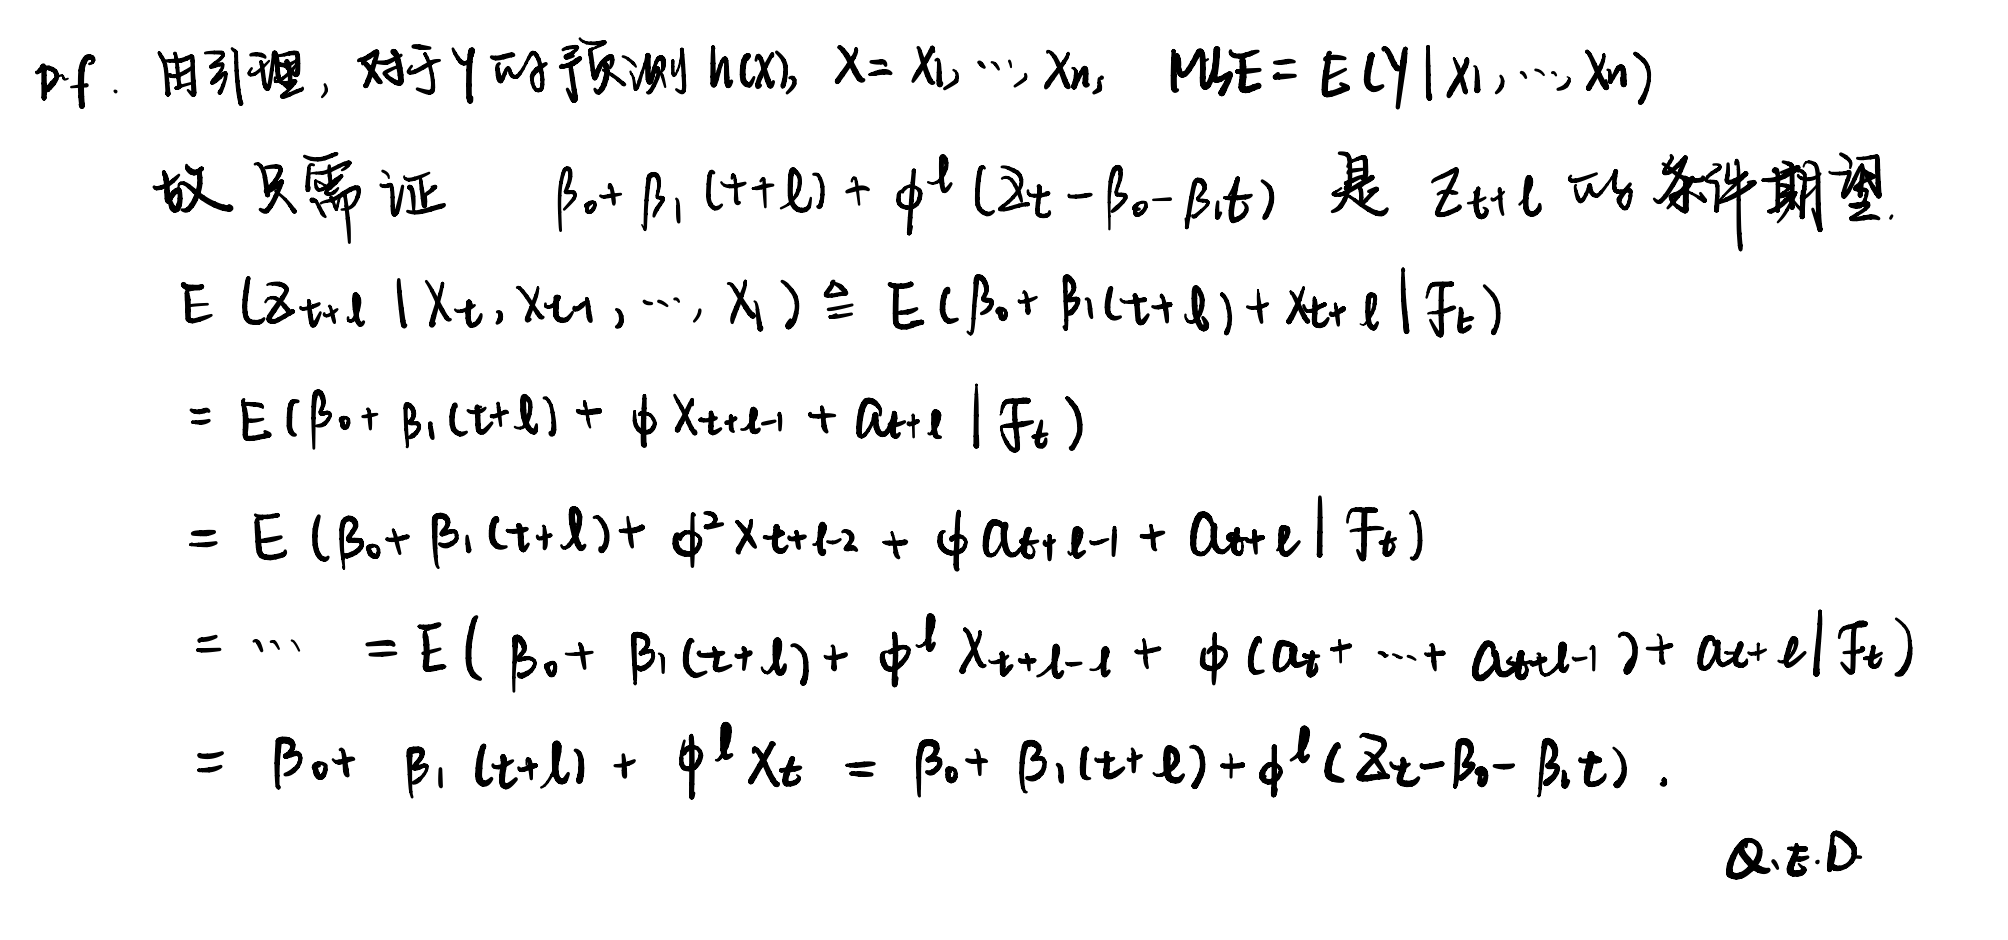 pf. 由引理, 对于Y的预测h(X), X=X₁,…,Xₙ, MSE=E(Y|X₁,…,Xₙ)
故只需证 β₀+β₁(t+l)+ϕˡ(Zₜ-β₀-β₁t) 是 Zₜ₊ₗ 的条件期望.
E(Zₜ₊ₗ|Xₜ,Xₜ₋₁,…,X₁)≜E(β₀+β₁(t+l)+Xₜ₊ₗ|ℱₜ)
=E(β₀+β₁(t+l)+ϕXₜ₊ₗ₋₁+aₜ₊ₗ|ℱₜ)
=E(β₀+β₁(t+l)+ϕ²Xₜ₊ₗ₋₂+ϕaₜ₊ₗ₋₁+aₜ₊ₗ|ℱₜ)
=… =E(β₀+β₁(t+l)+ϕˡXₜ₊ₗ₋ₗ+ϕ(aₜ+…+aₜ₊ₗ₋₁)+aₜ₊ₗ|ℱₜ)
=β₀+β₁(t+l)+ϕˡXₜ=β₀+β₁(t+l)+ϕˡ(Zₜ-β₀-β₁t).
Q.E.D